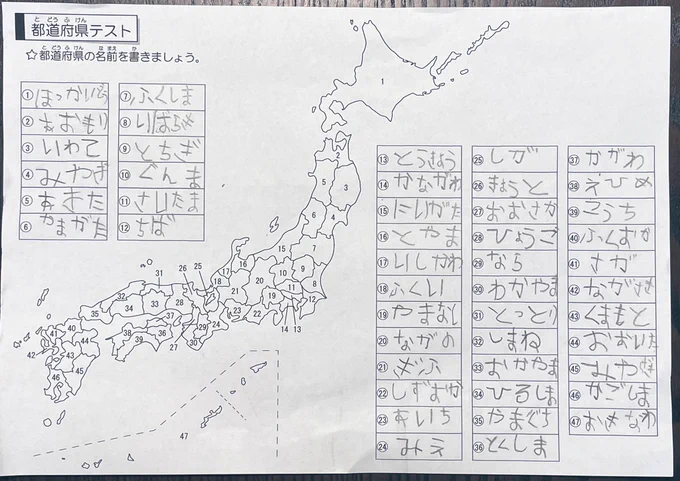 と どう ふ けん
都道府県テスト
と どう ふ けん な まえ か
☆都道府県の名前を書きましょう。
① ほっかいどう
② あおもり
③ いわて
④ みやぎ
⑤ あきた
⑥ やまがた
⑦ ふくしま
⑧ いばらぎ
⑨ とちぎ
⑩ ぐんま
⑪ さいたま
⑫ ちば
⑬ とうきょう
⑭ かながわ
⑮ にいがた
⑯ とやま
⑰ いしかわ
⑱ ふくい
⑲ やまなし
⑳ ながの
㉑ ぎふ
㉒ しずおか
㉓ あいち
㉔ みえ
㉕ しが
㉖ きょうと
㉗ おおさか
㉘ ひょうご
㉙ なら
㉚ わかやま
㉛ とっとり
㉜ しまね
㉝ おかやま
㉞ ひろしま
㉟ やまぐち
㊱ とくしま
㊲ かがわ
㊳ えひめ
㊴ こうち
㊵ ふくおか
㊶ さが
㊷ ながさき
㊸ くまもと
㊹ おおいた
㊺ みやざき
㊻ かごしま
㊼ おきなわ
1
2
5
3
6
4
15
7
17
16
9
10
8
18
20
11
21
19
12
22
13
14
23
31
26
25
32
33
28
24
34
35
29
30
27
37
36
38
39
40
41
42
43
44
45
46
47